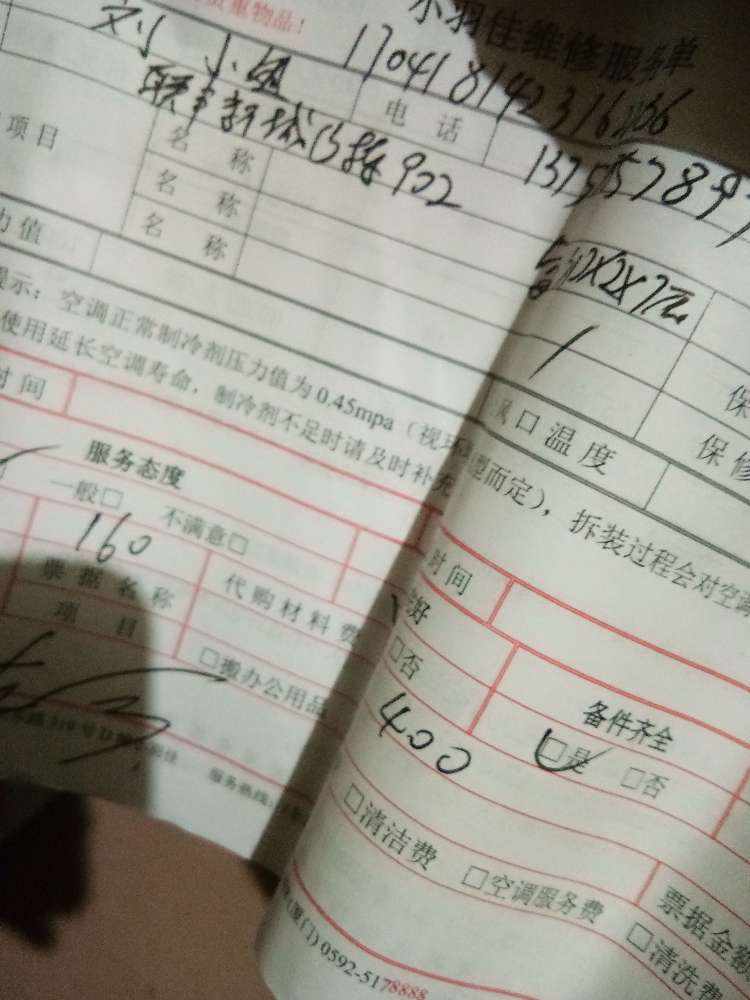 贵重物品!
小羽佳维修服务单
刘小姐
电话
17041814231
联丰新城
902
项目
名称
名称
名称
力值
提示:空调正常制冷剂压力值为0.45mpa(视环
使用延长空调寿命,制冷剂不足时请及时补充
时间
服务态度
一般□ 不满意□
160
票据名称
代购材料费
项目
□搬办公用品
服务热线:
2X2X7
保
风口温度
保修
型而定),拆装过程会对空调
时间
好
□否
备件齐全
□是 □否
400
□清洁费
□空调服务费
票据金额
□清洗费
(厦门) 0592-5178888